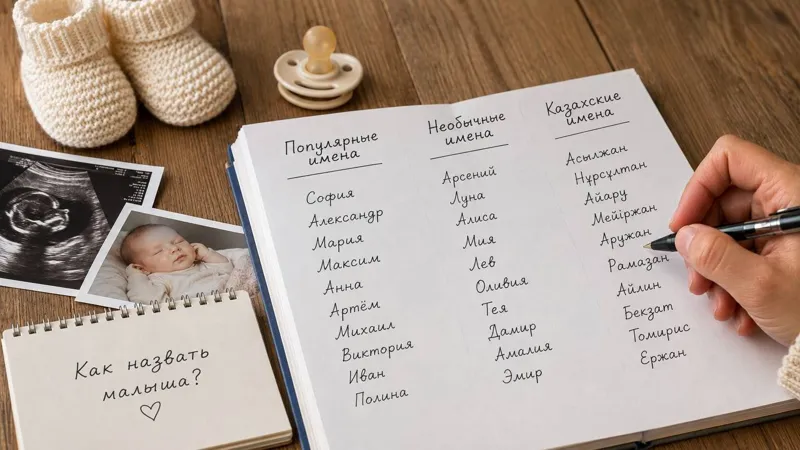 Популярные
имена
София
Александр
Мария
Максим
Анна
Артём
Михаил
Виктория
Иван
Полина
Необычные
имена
Арсений
Луна
Алиса
Мия
Лев
Оливия
Тея
Дамир
Амалия
Эмир
Казахские
имена
Асылжан
Нұрсұлтан
Айару
Мейіржан
Аружан
Рамазан
Айлин
Бекзат
Томирис
Ержан
Как назвать
малыша?